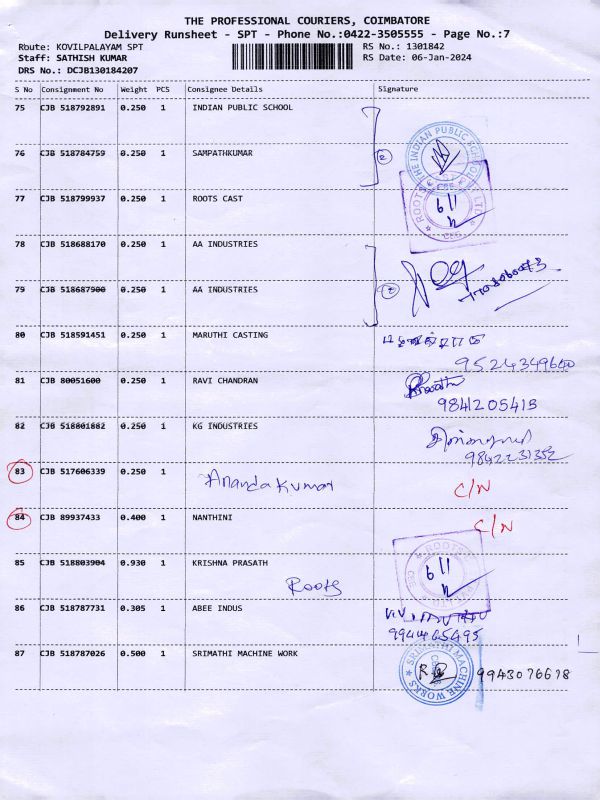 THE PROFESSIONAL COURIERS, COIMBATORE
Delivery Runsheet - SPT - Phone No.:0422-3505555 - Page No.:7
Route: KOVILPALAYAM SPT RS No.: 1301842
Staff: SATHISH KUMAR RS Date: 06-Jan-2024
DRS No.: DCJB130184207
S No Consignment No Weight PCS Consignee Details Signature
75 CJB 518792891 0.250 1 INDIAN PUBLIC SCHOOL
THE INDIAN PUBLIC SCHOOL
76 CJB 518784759 0.250 1 SAMPATHKUMAR 2
CBE
77 CJB 518799937 0.250 1 ROOTS CAST
ROOTS
78 CJB 518688170 0.250 1 AA INDUSTRIES
79 CJB 518687900 0.250 1 AA INDUSTRIES 2
80 CJB 518591451 0.250 1 MARUTHI CASTING
9524349640
81 CJB 80051600 0.250 1 RAVI CHANDRAN
9841205413
82 CJB 518801882 0.250 1 KG INDUSTRIES
9842231352
83 CJB 517606339 0.250 1 Ananda Kumar C/N
84 CJB 89937433 0.400 1 NANTHINI C/N
85 CJB 518803904 0.930 1 KRISHNA PRASATH
ROOTS
Roots
86 CJB 518787731 0.305 1 ABEE INDUS
9944465495
87 CJB 518787026 0.500 1 SRIMATHI MACHINE WORK
SRIMATHI MACHINE WORKS
9943076678